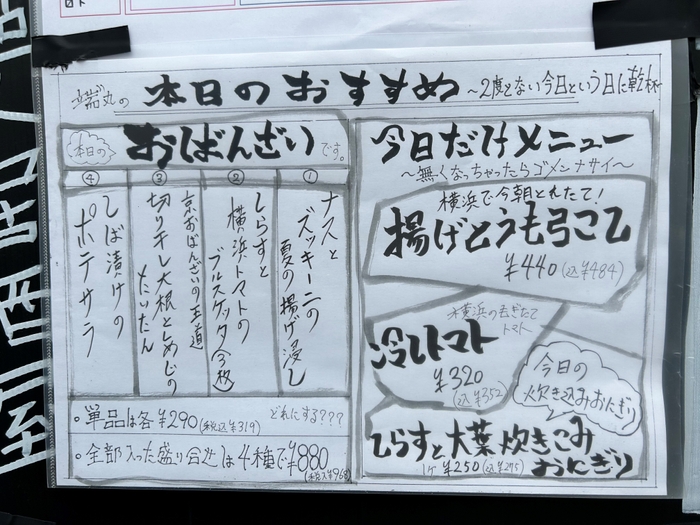 端丸の 本日のおすすめ ～2度とない今日という日に乾杯～
本日の おばんざい です。
① ナスと
ズッキーニの
夏の揚げ浸し
② しらすと
横浜トマトの
ブルスケッタ(2枚)
③ 京おばんざいの王道
切りキレ大根としめじの
たいたん
④ しば漬けの
ポテサラ
・単品は各¥290(税込¥319) どれにする???
・全部入った盛り合せは4種で¥880
(税込¥968)
今日だけメニュー
～無くなっちゃったらゴメンナサイ～
横浜で今朝とれたて!
揚げとうも弓こ乙
¥440(込¥484)
横浜のもぎたて
トマト
冷しトマト
¥320
(込¥352)
今日の
炊き込みおにぎり
しらすと大葉炊きこみ
おにぎり
1ケ¥250(込¥275)
居酒屋